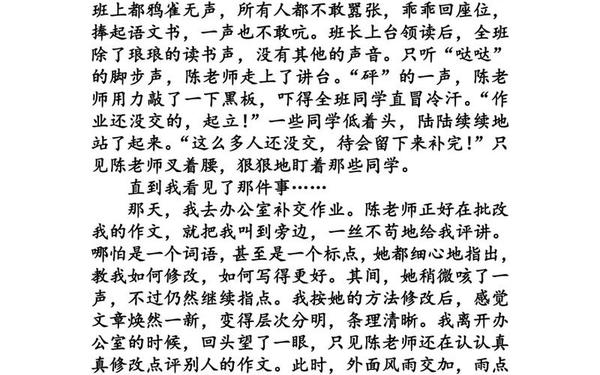 班上都鸦雀无声，所有人都不敢嚣张，乖乖回座位，
捧起语文书，一声也不敢吭。班长上台领读后，全班
除了琅琅的读书声，没有其他的声音。只听“哒哒”
的脚步声，陈老师走上了讲台。“砰”的一声，陈老
师用力敲了一下黑板，吓得全班同学直冒冷汗。“作
业还没交的，起立！”一些同学低着头，陆陆续续地
站了起来。“这么多人还没交，待会留下来补完！”只
见陈老师叉着腰，狠狠地盯着那些同学。
直到我看见了那件事……
那天，我去办公室补交作业。陈老师正好在批改
我的作文，就把我叫到旁边，一丝不苟地给我评讲。
哪怕是一个词语，甚至是一个标点，她都细心地指出，
教我如何修改，如何写得更好。其间，她稍微咳了一
声，不过仍然继续指点。我按她的方法修改后，感觉
文章焕然一新，变得层次分明，条理清晰。我离开办
公室的时候，回头望了一眼，只见陈老师还在认认真
真修改点评别人的作文。此时，外面风雨交加，雨点